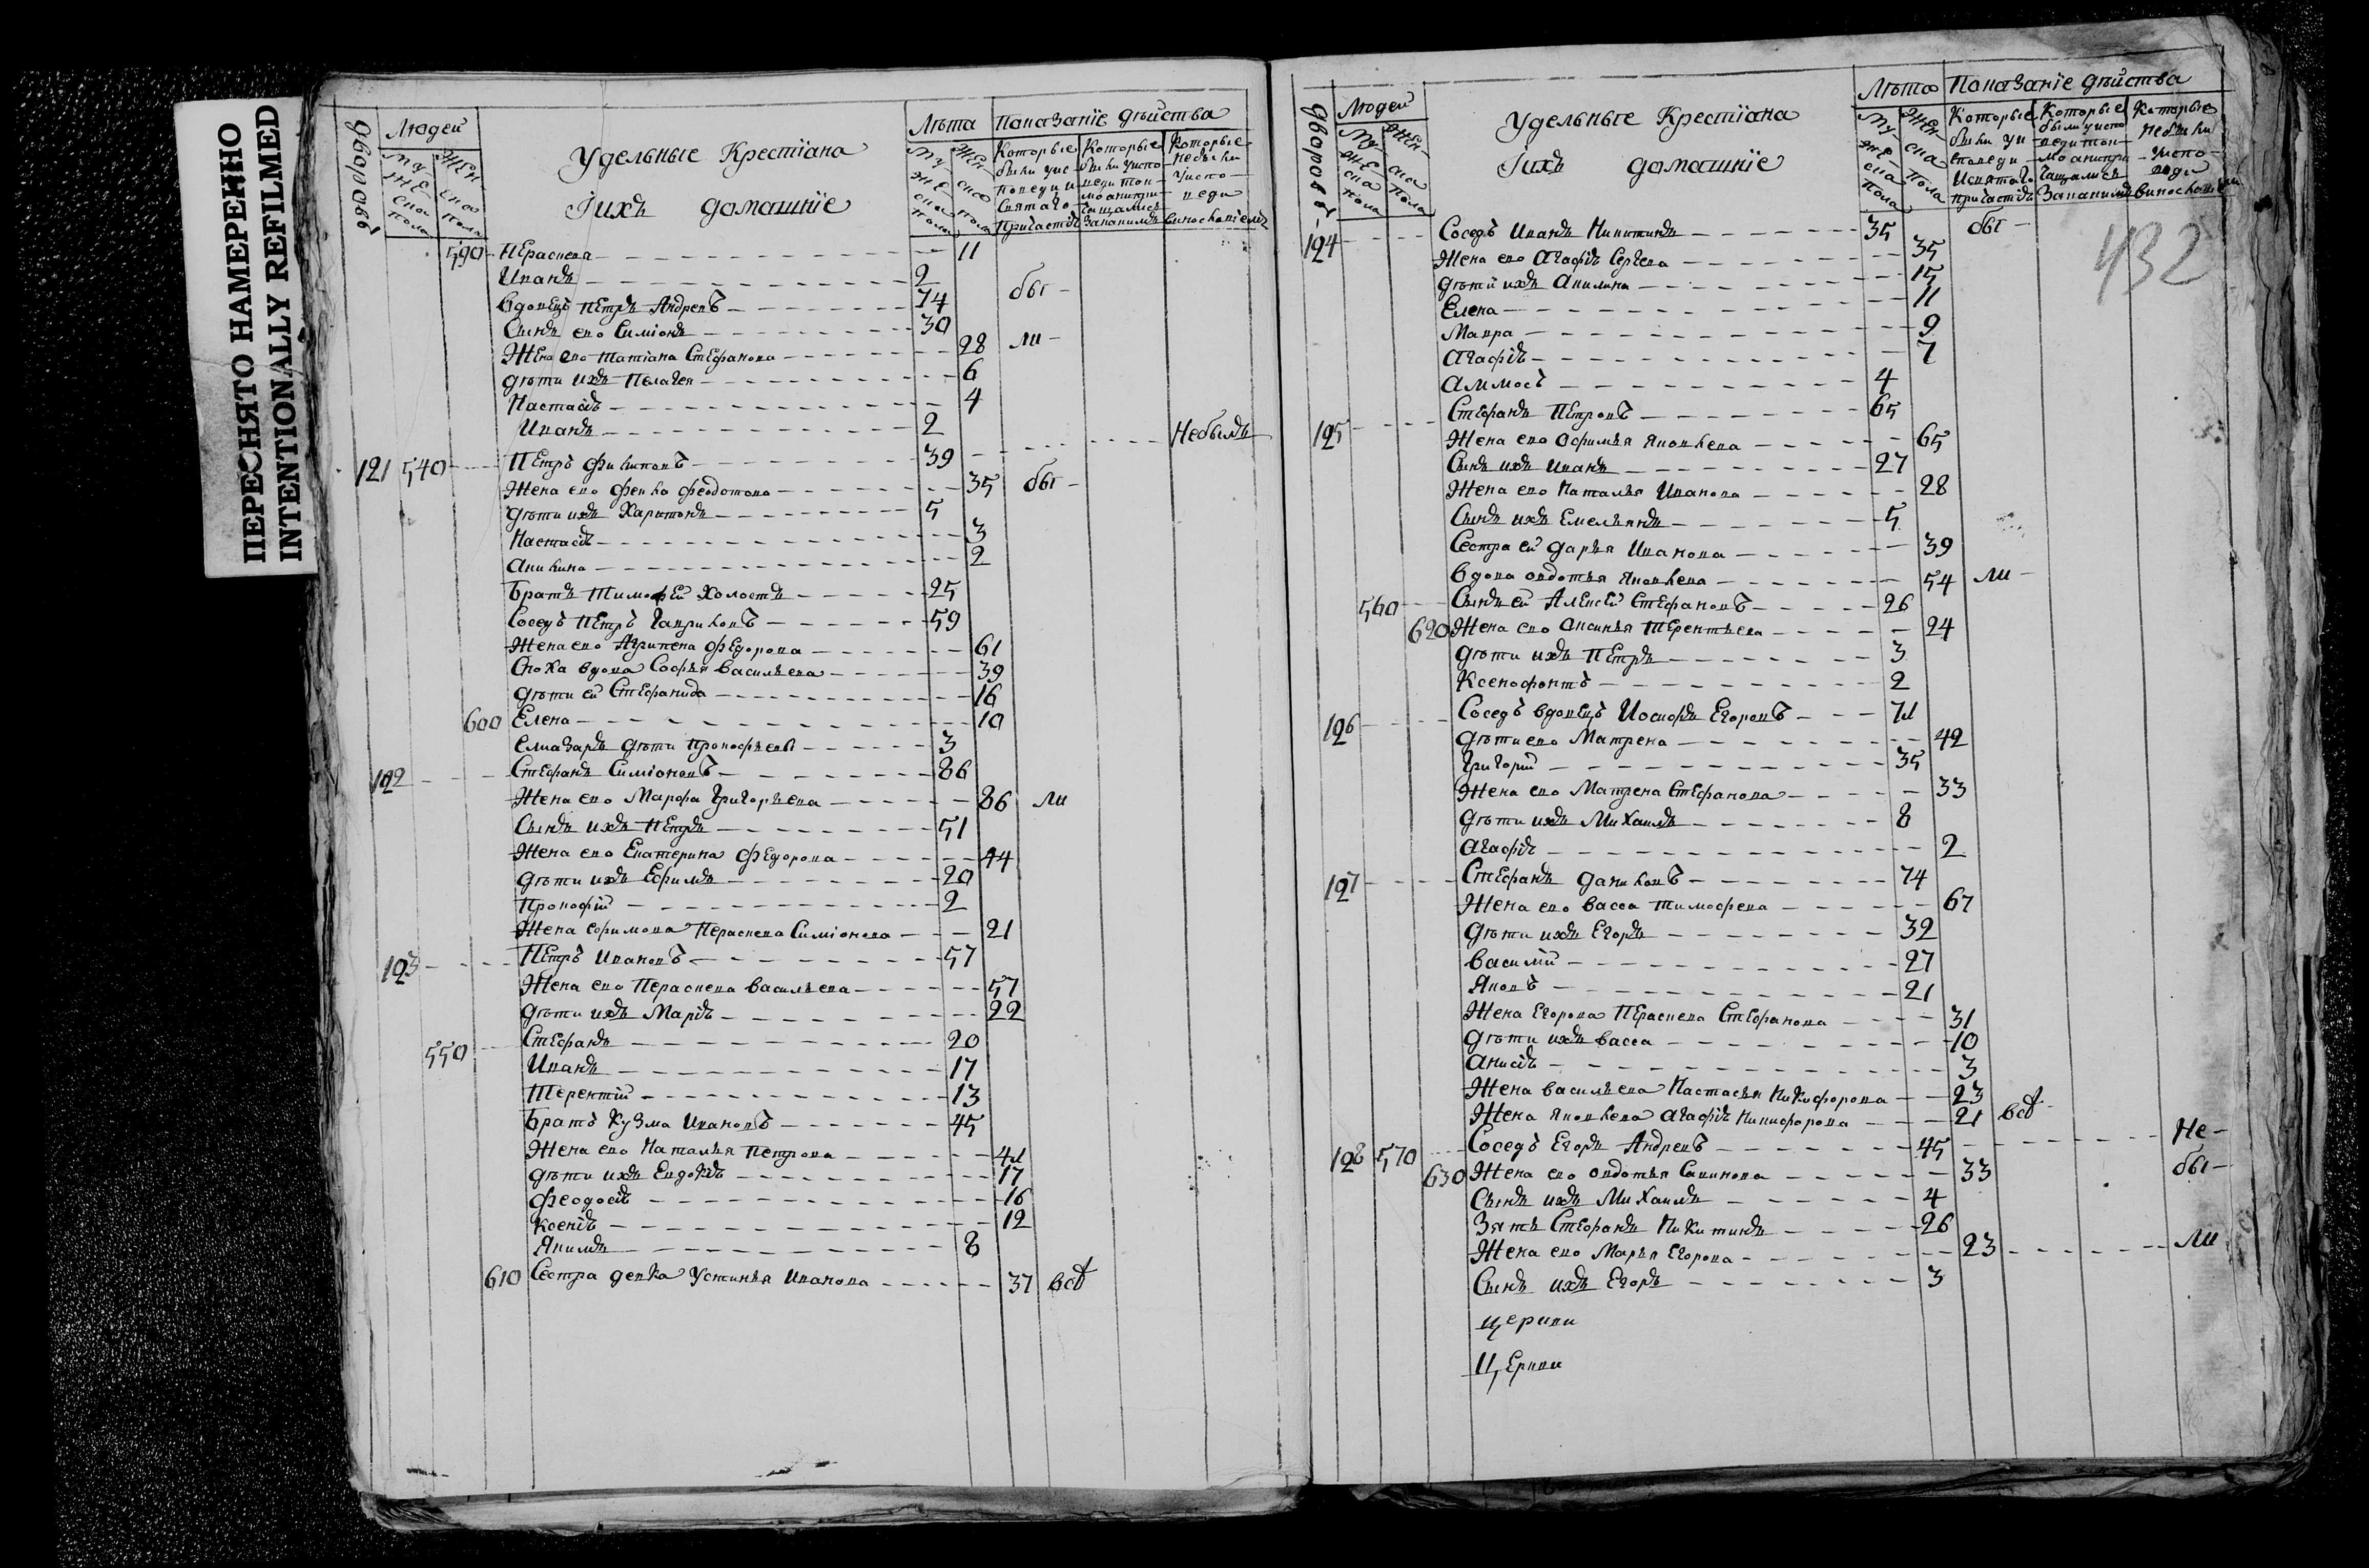 ПЕРЕСНЯТО НАМЕРЕННО
INTENTIONALLY REFILMED
дворовъ
Людей
Удельные Крестіяна
Лѣта
Показаніе дѣйства
Муже ска пола
Жен ска пола
Іихъ домашніе
Муже ска пола
Жен ска пола
Которые были у исповеди и святаго причастія
Которые были у исповеди токмо а непричащались за каким
Которые небыли у исповеди
590 Пераскева 11
Иванъ 2
вдовецъ Петръ Андреевъ 74 бы
Сынъ ево Симіонъ 30
Жена ево Татіана Стефанова 28 ли
дѣти ихъ Пелагея 6
Настасія 4
Иванъ 2
121 540 Петръ Филиповъ 39 Небылъ
Жена ево Фекла Феодотова 35 бы
дѣти ихъ Харитонъ 5
Настасія 3
Акилина 2
Братъ Тимофей Холостъ 25
Соседъ Петръ Гавриловъ 59
Жена ево Агрипена Федорова 61
Сноха вдова Софья Васильева 39
дѣти ей Стефанида 16
600 Елена 10
Елиазаръ дѣти Прокофьевы 3
122 Стефанъ Симіоновъ 86
Жена ево Марфа Григорьева 86 ли
Сынъ ихъ Петръ 51
Жена ево Екатерина Федорова 44
дѣти ихъ Ефимъ 20
Прокофій 2
Жена Ефимова Пераскева Симіонова 21
123 Петръ Ивановъ 57
Жена ево Пераскева Васильева 57
дѣти ихъ Марія 22
550 Стефанъ 20
Иванъ 17
Терентій 13
Братъ Кузма Ивановъ 45
Жена ево Наталья Петрова 41
дѣти ихъ Евдокія 17
Феодосія 16
Ксенія 12
Якимъ 8
610 Сестра девка Устинья Иванова 37 всѣ
дворовъ
Людей
Удельные Крестіяна
Лѣта
Показаніе дѣйства
Муже ска пола
Жен ска пола
Іихъ домашніе
Муже ска пола
Жен ска пола
Которые были у исповеди и святаго причастія
Которые были у исповеди
Которые небыли у исповеди
432
124 Соседъ Иванъ Никитинъ 35 бы
Жена ево Агафія Сергева 35
дѣти ихъ Акилина 15
Елена 11
Мавра 9
Агафія 7
Аммосъ 4
125 Стефанъ Петровъ 65
Жена ево Офимья Яковлева 65
Сынъ ихъ Иванъ 27
Жена ево Наталья Иванова 28
Сынъ ихъ Емельянъ 5
Сестра ей Дарья Иванова 39
вдова Овдотья Яковлева 54 ли
560 Сынъ ей Алексей Стефановъ 26
620 Жена ево Аксинья Терентьева 24
дѣти ихъ Петръ 3
Ксенофонтъ 2
126 Соседъ вдовецъ Иосифъ Егоровъ 71
дѣти ево Матрена 42
Григорій 35
Жена ево Матрена Стефанова 33
дѣти ихъ Михаилъ 8
Агафія 2
127 Стефанъ Даниловъ 74
Жена ево Васса Тимофева 67
дѣти ихъ Егоръ 32
Василій 27
Яковъ 21
Жена Егорова Пераскева Стефанова 31
дѣти ихъ Васса 10
Анисія 3
Жена Васильева Настасья Никифорова 23
Жена Яковлева Агафія Никифорова 21 всѣ
128 570 Соседъ Егоръ Андреевъ 45 Не
630 Жена ево Овдотья Савинова 33 бы
Сынъ ихъ Михаилъ 4
Зять Стефанъ Никитинъ 26
Жена ево Марья Егорова 23 ли
Сынъ ихъ Егоръ 3
церкви
Церкви